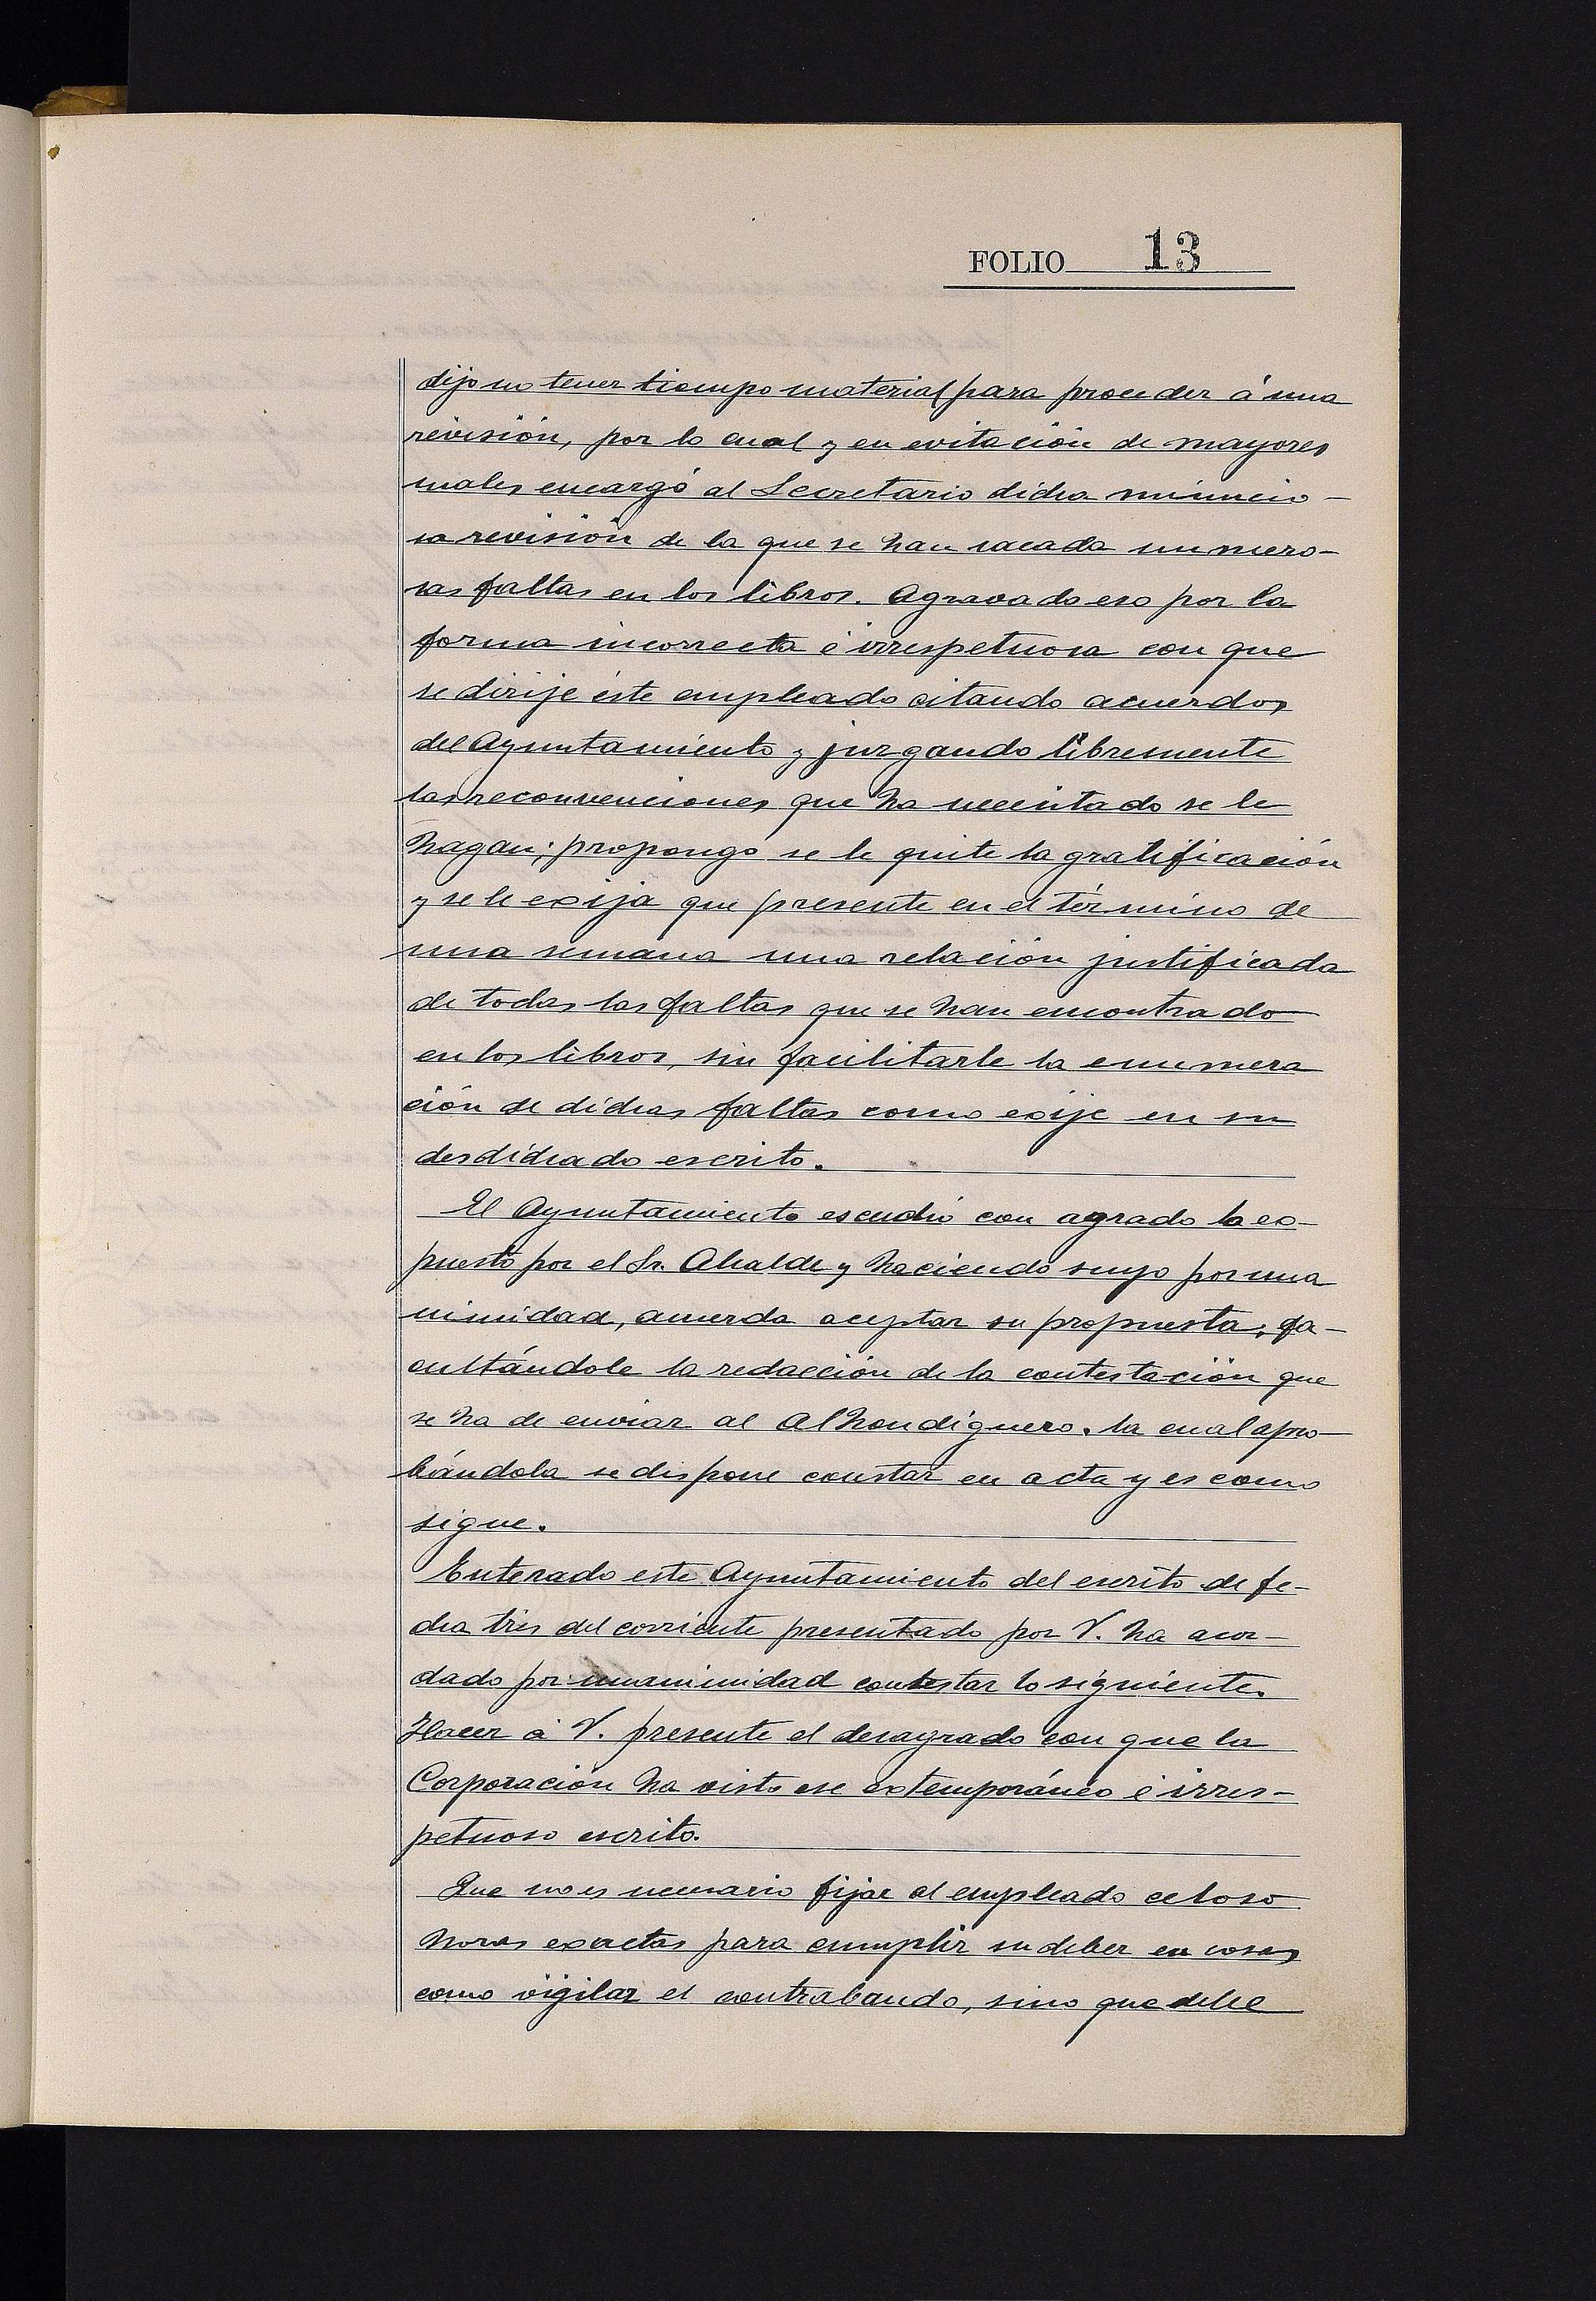 FOLIO 13
dijo no tener tiempo material para proceder á una
revisión, por lo cual y en evitación de mayores
males encargó al Secretario dicha minucio-
sa revisión de la que se han sacado numero-
sas faltas en los libros. Agravado eso por la
forma incorrecta é irrespetuosa con que
se dirije éste empleado citando acuerdos
del Ayuntamiento y juzgando libremente
las reconvenciones que ha necesitado se le
hagan; propongo se le quite la gratificación
y se le exija que presente en el término de
una semana una relación justificada
de todas las faltas que se han encontrado
en los libros, sin facilitarle la enumera
ción de dichas faltas como exije en su
desdichado escrito.
El Ayuntamiento escuchó con agrado lo ex-
puesto por el Sr. Alcalde y haciendo suyo por una
nimidad, acuerda aceptar su propuesta; fa-
cultándole la redacción de la contestación que
se ha de enviar al Alhondiguero. la cual apro-
bándola se dispone constar en acta y es como
sigue.
Enterado este Ayuntamiento del escrito de fe-
cha tres del corriente presentado por V. ha acor-
dado por unanimidad contestar lo siguiente.
Hacer á V. presente el desagrado con que la
Corporación ha visto ese extemporáneo é irres-
petuoso escrito.
Que no es necesario fijar al empleado celoso
horas exactas para cumplir su deber en cosas
como vigilar el contrabando, sino que debe